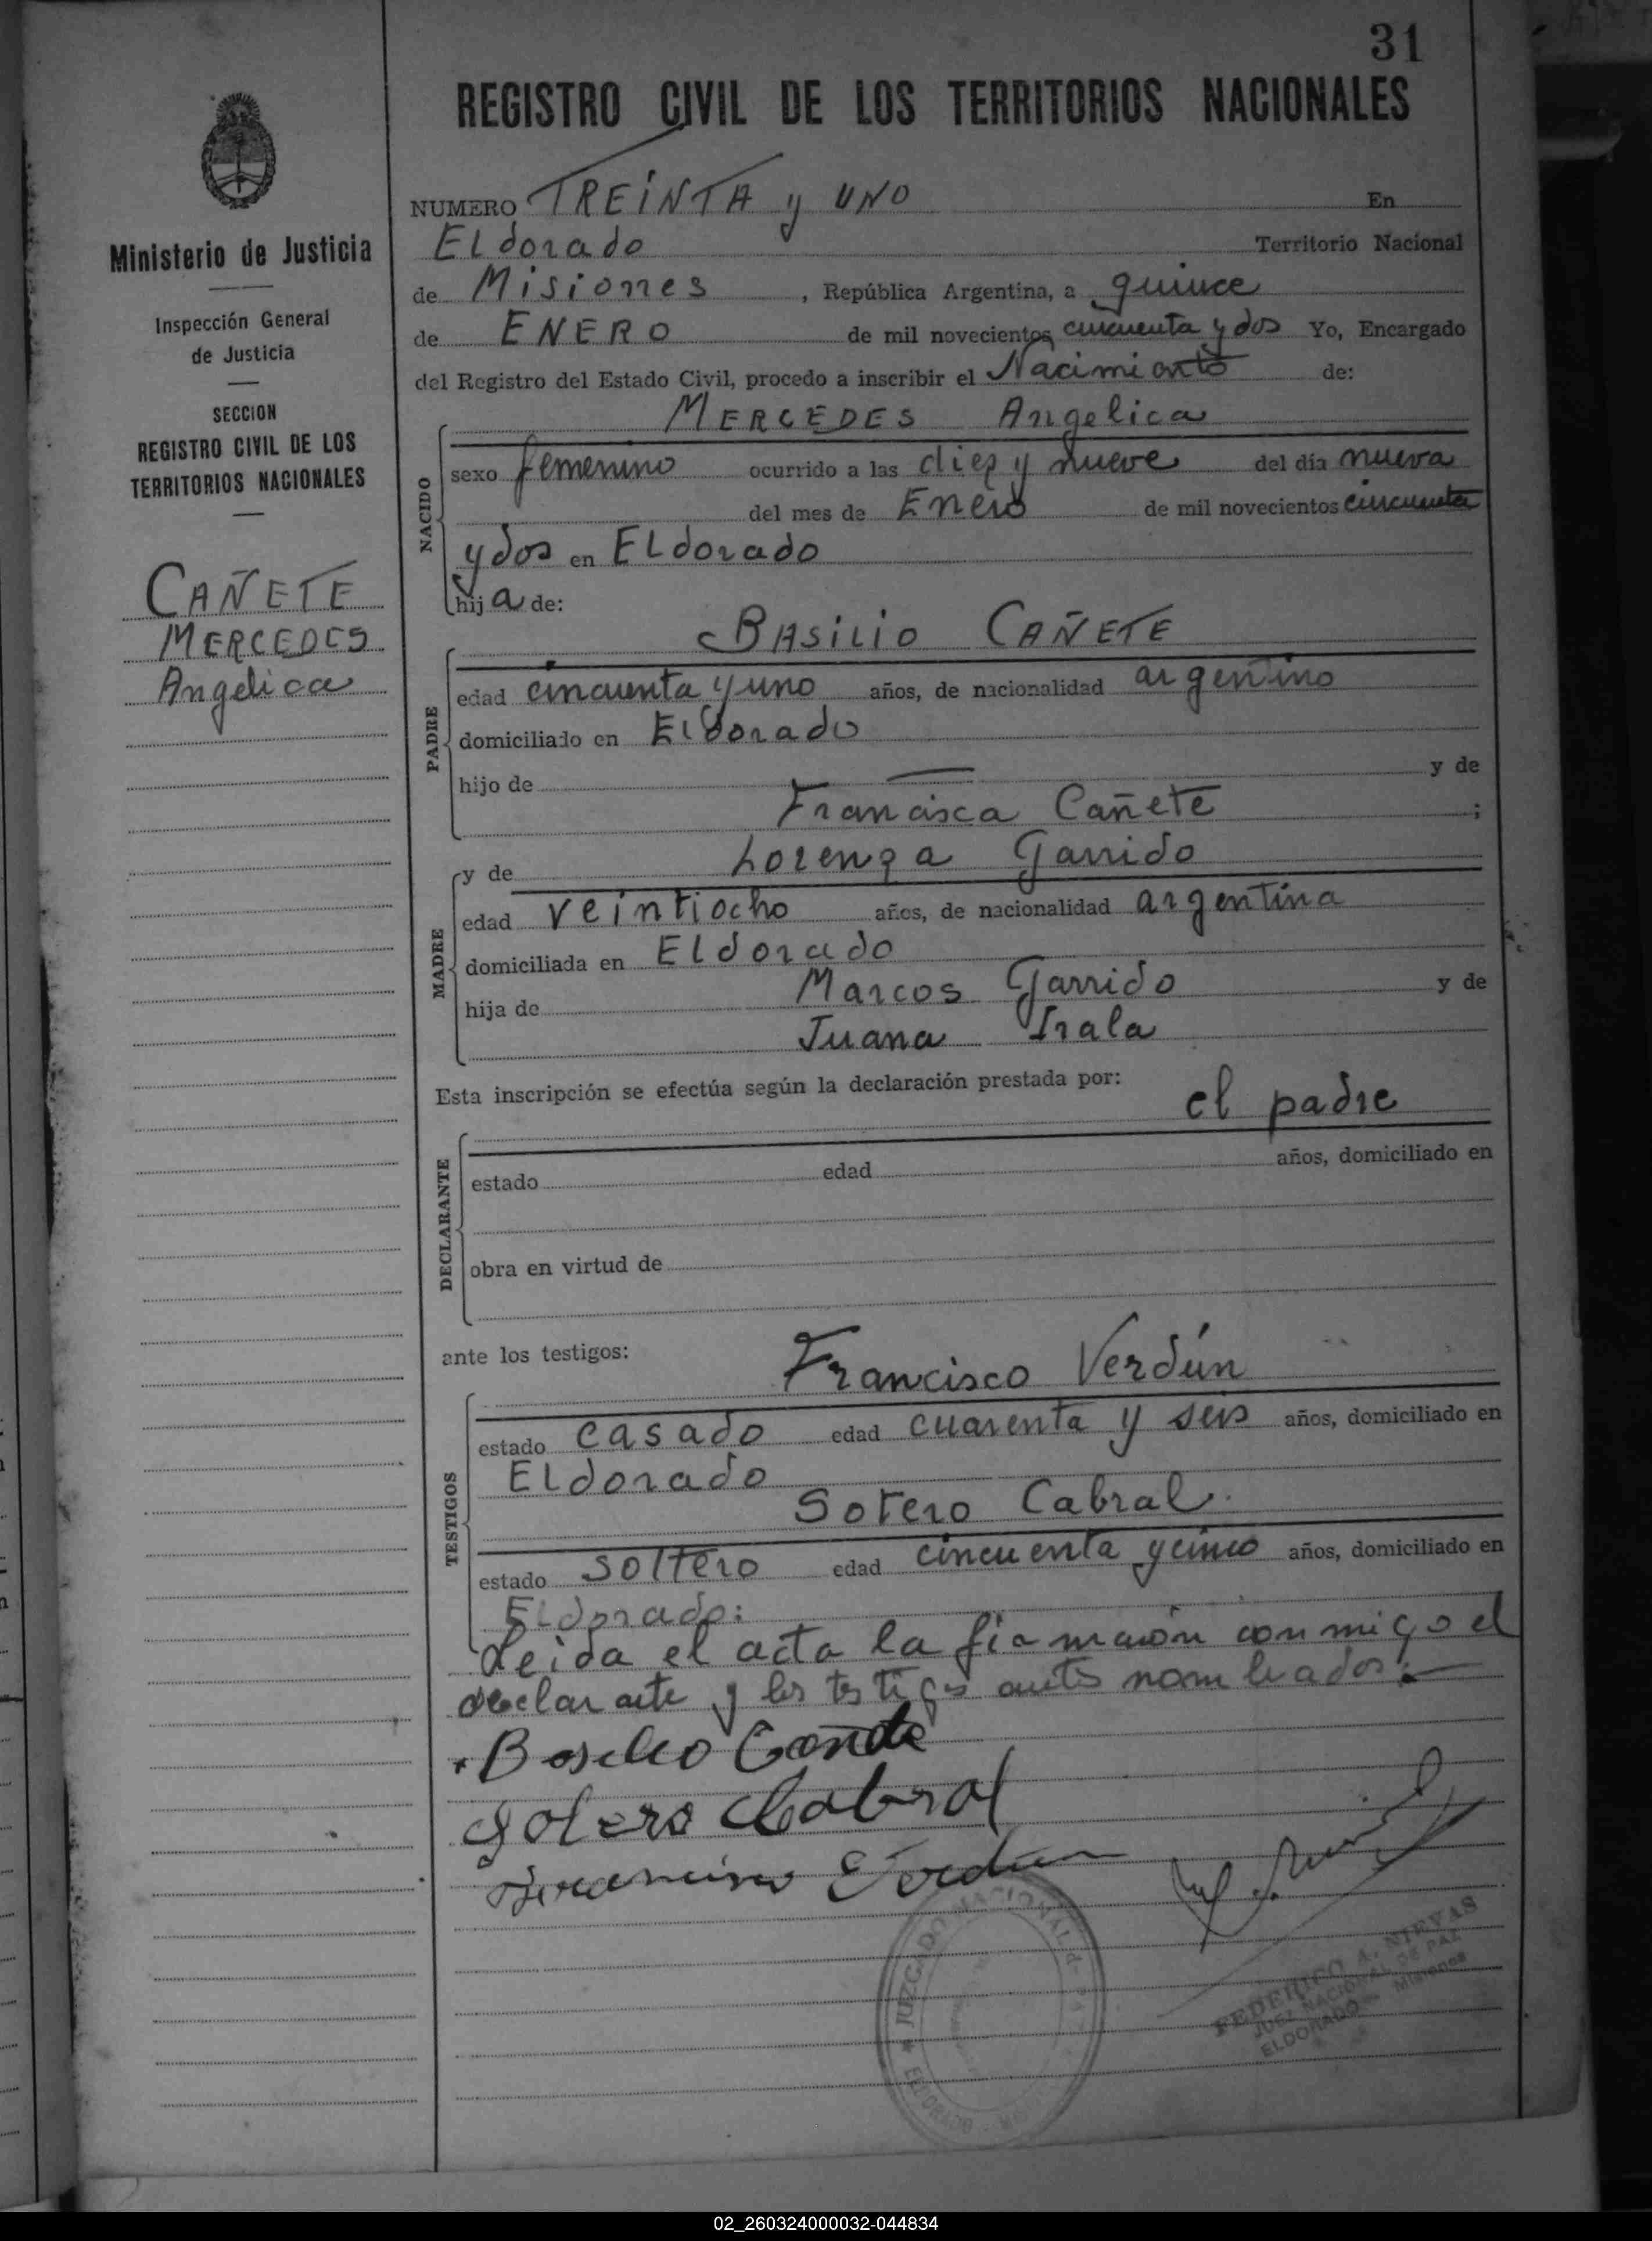 31
REGISTRO CIVIL DE LOS TERRITORIOS NACIONALES
Ministerio de Justicia
Inspección General
de Justicia
SECCION
REGISTRO CIVIL DE LOS
TERRITORIOS NACIONALES
CAÑETE
MERCEDES
Angelica
NUMERO TREINTA y UNO En
ELdorado Territorio Nacional
de Misiones, República Argentina, a quince
de ENERO de mil novecientos cincuenta y dos Yo, Encargado
del Registro del Estado Civil, procedo a inscribir el Nacimiento de:
MERCEDES Angelica
NACIDO
sexo femenino ocurrido a las diez y nueve del día nueve
del mes de Enero de mil novecientos cincuenta
y dos en ELdorado
hija de:
BASILIO CAÑETE
PADRE
edad cincuenta y uno años, de nacionalidad argentino
domiciliado en ELdorado
hijo de — y de
Francisca Cañete ;
MADRE
y de Lorenza Garrido
edad veintiocho años, de nacionalidad argentina
domiciliada en ELdorado
hija de Marcos Garrido y de
Juana Irala
Esta inscripción se efectúa según la declaración prestada por:
el padre
DECLARANTE
estado edad años, domiciliado en
obra en virtud de
ante los testigos:
Francisco Verdún
TESTIGOS
estado casado edad cuarenta y seis años, domiciliado en
ELdorado
Sotero Cabral.
estado soltero edad cincuenta y cinco años, domiciliado en
ELdorado:
Leida el acta la firmaron conmigo el
declarante y los testigos antes nombrados:—
Basilio Cañete
Sotero Cabral
Francisco Verdun
JUZGADO NACIONAL de PAZ
ELDORADO
FEDERICO A. NIEVAS
JUEZ NACIONAL DE PAZ
ELDORADO - Misiones
02_260324000032-044834